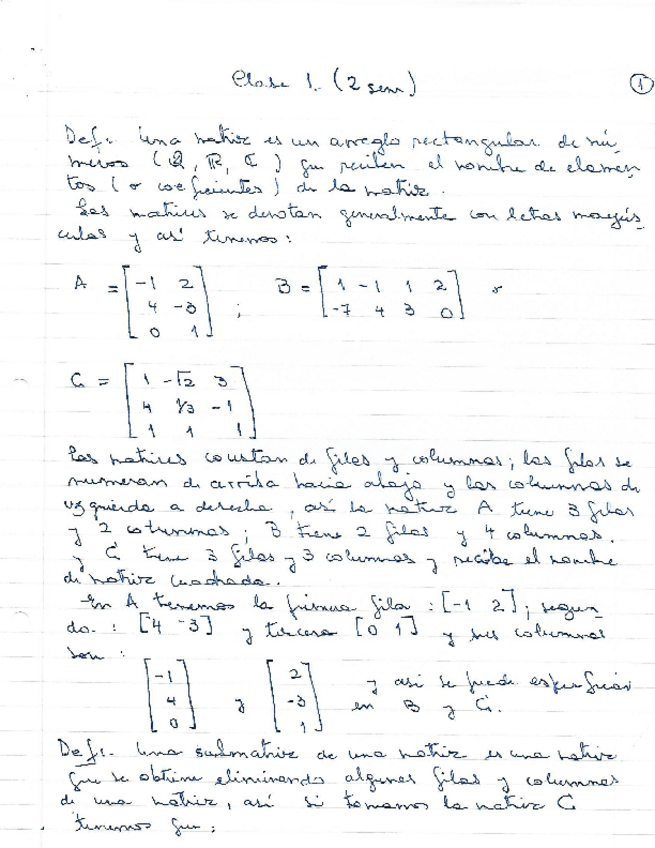 Clase 1. (2 sem)
1
Def: Una matriz es un arreglo rectangular de nú-
meros (Q, R, C) que reciben el nombre de elemen-
tos (o coeficientes) de la matriz.
Las matrices se denotan generalmente con letras mayús-
culas y así tenemos:
A = [-1 2; 4 -3; 0 1] ; B = [1 -1 1 2; -7 4 3 0]
C = [1 -√2 3; 4 1/3 -1; 1 1 1]
Las matrices constan de filas y columnas; las filas se
numeran de arriba hacia abajo y las columnas de
izquierda a derecha, así la matriz A tiene 3 filas
y 2 columnas; B tiene 2 filas y 4 columnas.
y C tiene 3 filas y 3 columnas y recibe el nombre
de matriz cuadrada.
En A tenemos la primera fila : [-1 2]; segun-
do. : [4 -3] y tercera [0 1] y sus columnas
son :
[-1; 4; 0] y [2; -3; 1] y así se puede especificar
en B y C.
Def:. Una submatriz de una matriz es una matriz
que se obtiene eliminando algunas filas y columnas
de una matriz, así si tomamos la matriz C
tenemos que: